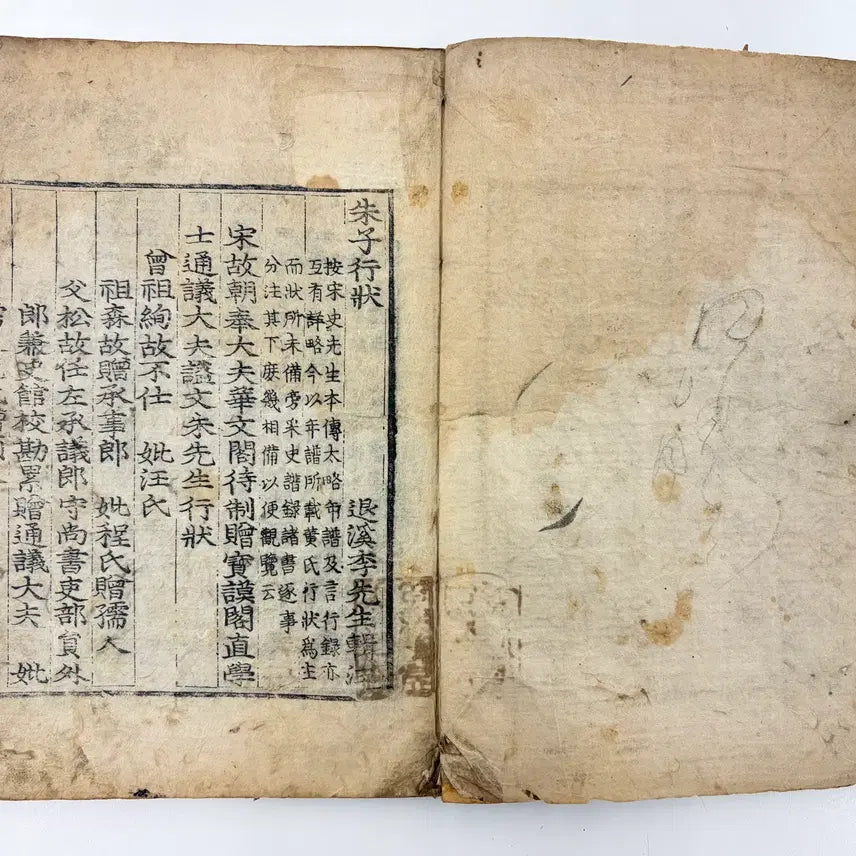 朱子行狀
退溪李先生輯注
按宋史先生本傳太略而譜及言行錄亦
互有詳略今以年譜所載黃氏行狀爲主
而狀所未備旁采史譜錄諸書逐事
分注其下庶幾相備以便觀覽云
宋故朝奉大夫華文閣待制贈寶謨閣直學
士通議大夫諡文朱先生行狀
曾祖絢故不仕 妣汪氏
祖森故贈承事郎 妣程氏贈孺人
父松故任左承議郎守尚書吏部員外
郎兼史館校勘累贈通議大夫 妣